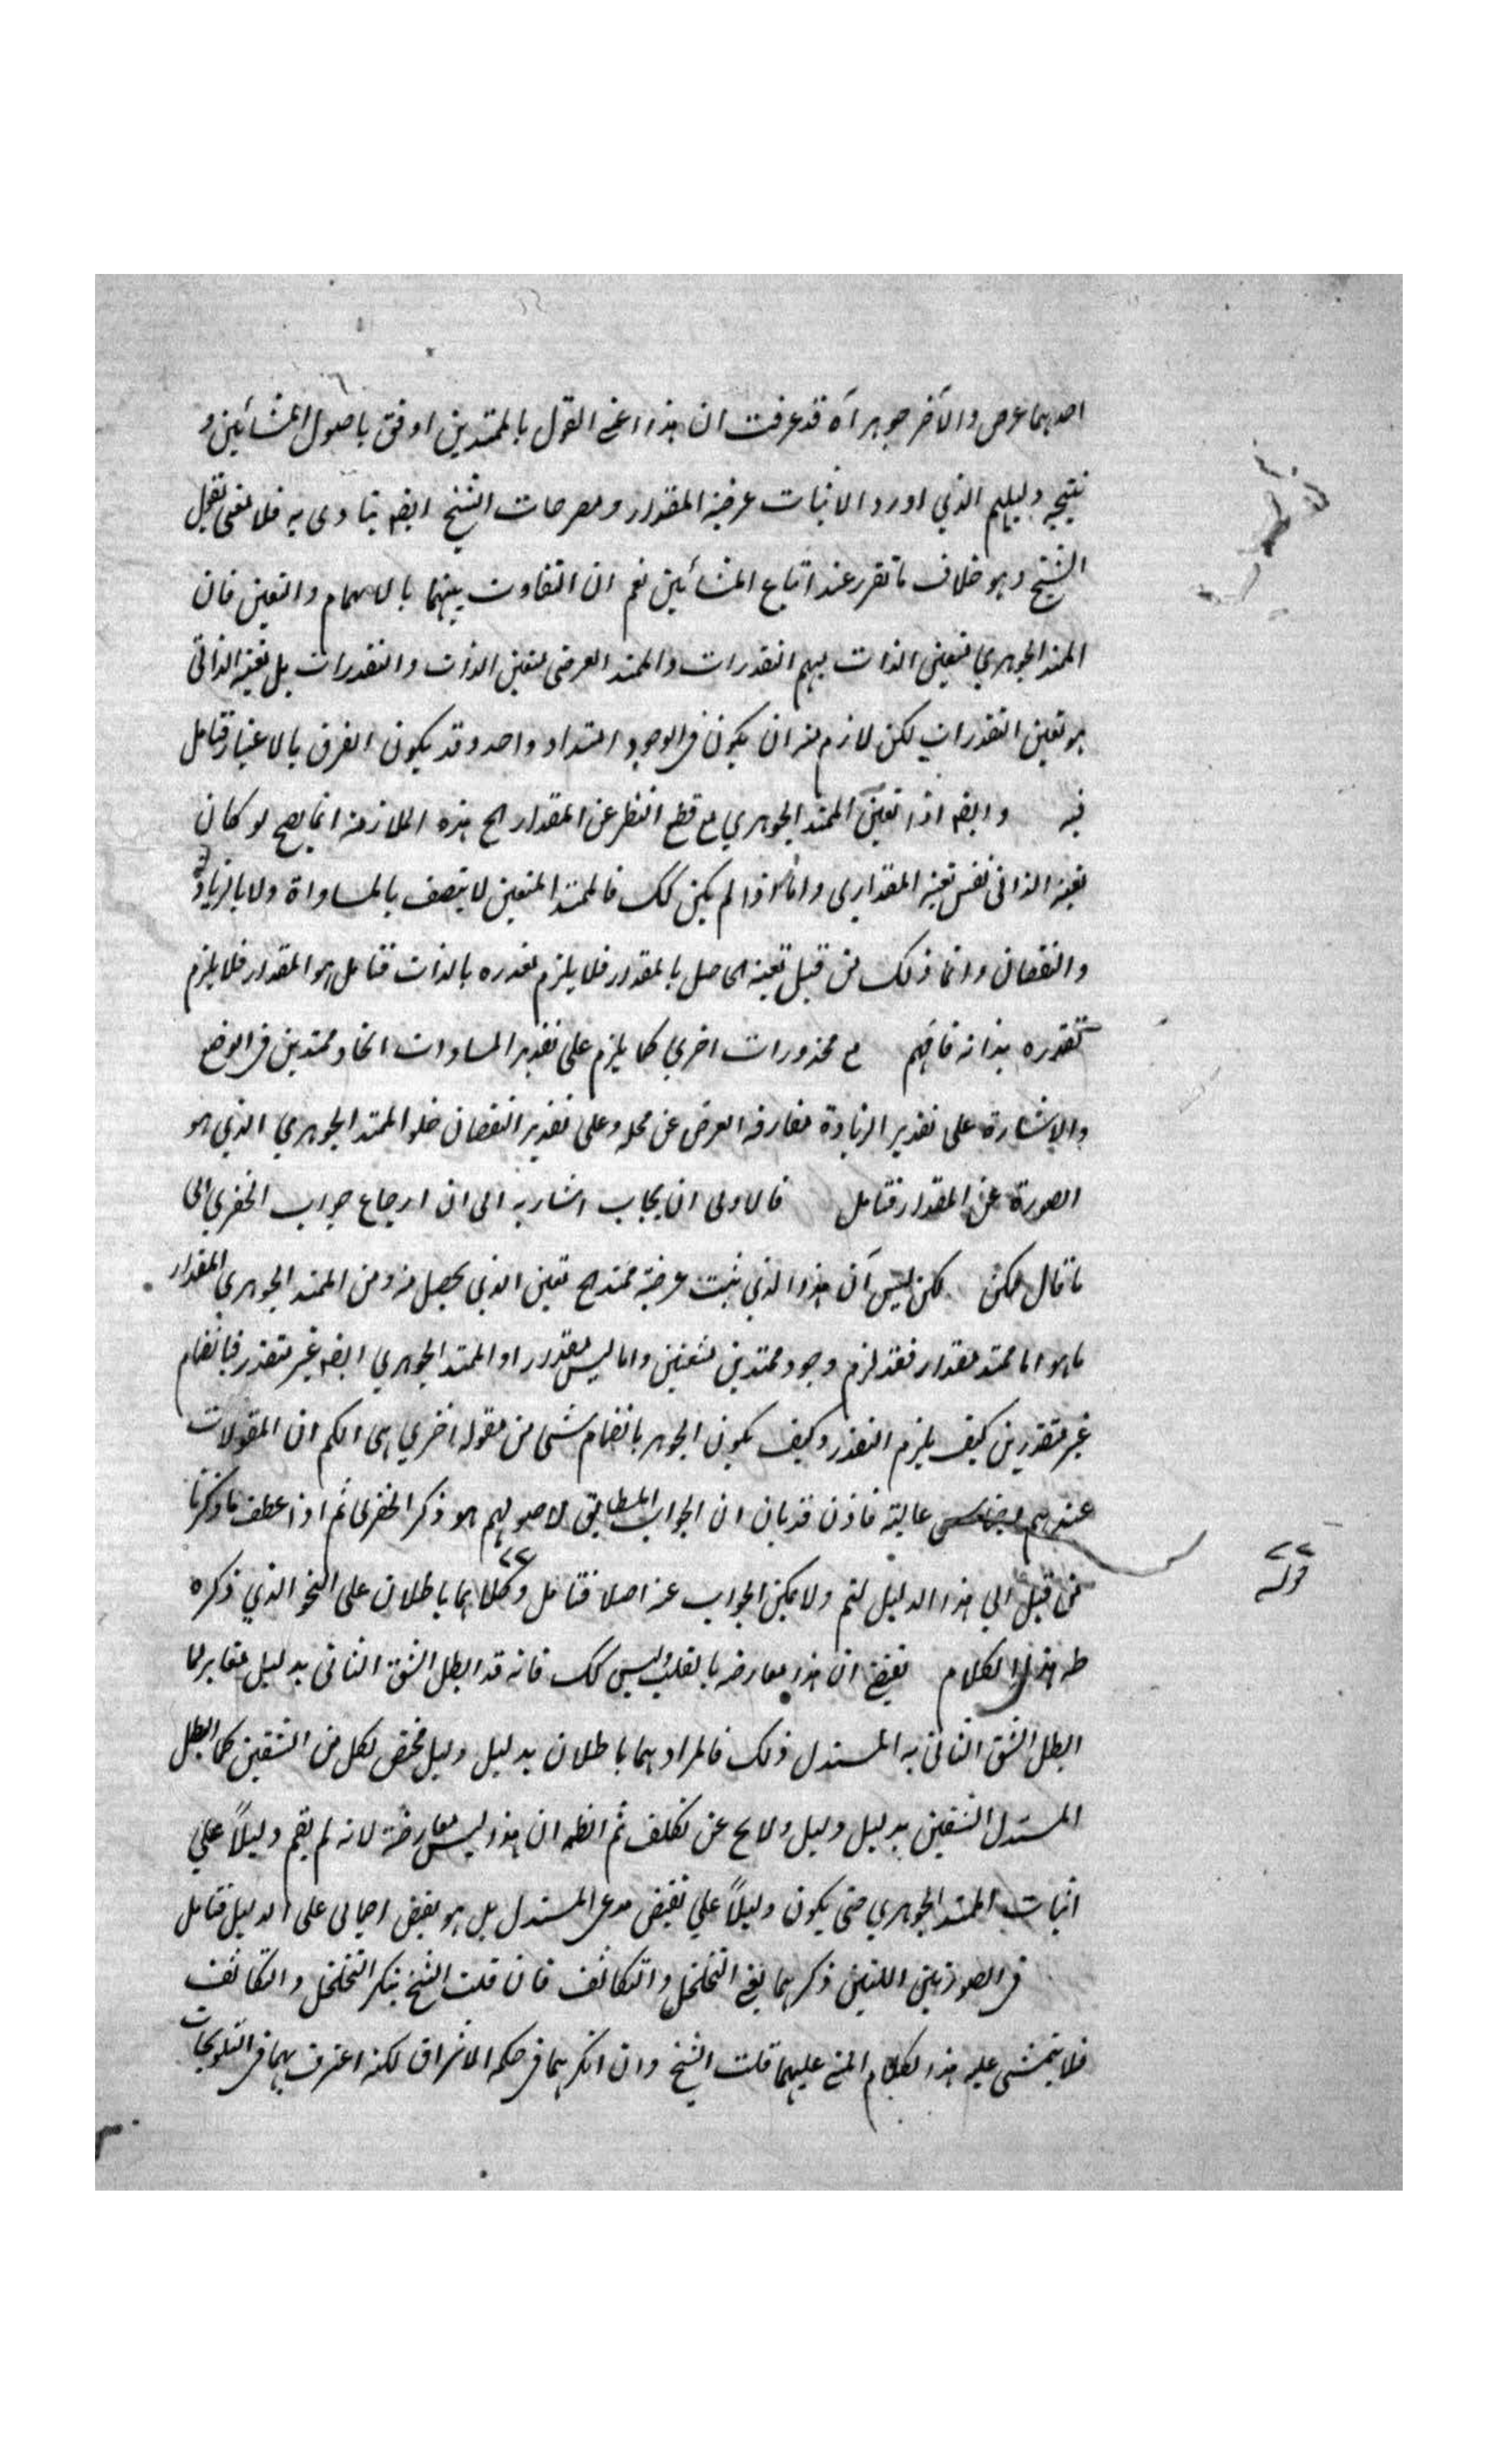 احدهما عرض والآخر جوهر آه قد عرفت ان هذا اعنے القول بالممتدين اوفق باصول المشائين و
نتيجه دليلهم الذي اورد لاثبات عرضية المقدار ومصرحات الشيخ ايضا ينادى به فلا معنى لجعل
الشيخ وهو خلاف ما تقرر عند اتباع المشائين نعم ان التفاوت بينهما بالابهام والتعين فان
الممتد الجوهري متعين الذات مبهم التقدرات والممتد العرضى متعين الذات والتقدرات بل تعينه الذاتى
هو تعين التقدرات لكن لازم منه ان يكون فى الوجود امتداد واحد وقد يكون الفرق بالاعتبار فتامل
فيه وايضا اذا تعين الممتد الجوهري مع قطع النظر عن المقدار الخ هذه الملازمة انما يصح لو كان
تعينه الذاتى نفس تعينه المقدارى واما اذا لم يكن كك فالممتد المتعين لا يتصف بالمساواة ولا بالزيادة
والنقصان وانما ذلك من قبل تعينه الحاصل بالمقدار فلا يلزم تقدره بالذات فتامل هو المقدار فلا يلزم
تقدره بذاته فافهم مع محذورات اخري كما يلزم على تقدير المساوات اتحاد ممتدين فى الوضع
والاشارة على تقدير الزيادة مفارقة العرض عن محله وعلى تقدير النقصان خلو الممتد الجوهري الذي هو
الصورة عن المقدار فتامل فالاولى ان يجاب اشار به الى ان ارجاع جواب الخفري الى
ما قال ممكن لكن ليس آن هذا الذي يثبت عرضية ممتد ح تعين الذي يحصل منه ومن الممتد الجوهري المقدار
ما هو اما ممتد مقدار فقد لزم وجود ممتدين متعينين واما ليس بمقدار او الممتد الجوهري ايضا غير متقدر فبانضمام
غير متقدرين كيف يلزم التقدر وكيف يكون الجوهر بانضمام شى من مقولة اخري الكم ان المقولات
عندهم عالية فاذن قد بان ان الجواب المطابق لاصولهم هو ذكر الخفرى ثم اذا عطف ما ذكرنا
من قبل الي هذا الدليل لتم ولا يمكن الجواب عنه اصلا فتامل وكلاهما باطلان على النحو الذي ذكره
قوله
ظاهر هذا الكلام يقتضى ان هذا معارضة بالقلب وليس كك فانه قد ابطل الشق الثانى بدليل مغاير لما
ابطل الشق الثانى به المستدل ذلك فالمراد بهما باطلان بدليل دليل مختص لكل من الشقين كما ابطل
المستدل الشقين بدليل دليل ولا يخ عن تكلف ثم الظاهر ان هذا ليس معارضة لانه لم يقم دليلاً علي
اثبات الممتد الجوهري حتى يكون دليلاً علي نقيض مدعى المستدل بل هو نقض اجمالى على الدليل فتامل
فى الصورتين اللتين ذكرهما يعنے التخلخل والتكاثف فان قلت الشيخ ينكر التخلخل والتكاثف
فلا يتمشى عليه هذا الكلام المبنى عليهما قلت الشيخ وان انكرهما فى حكمة الاشراق لكنه اعترف بهما فى التلويحات